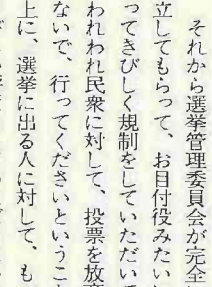 それから選挙管理委員会が完全
立してもらって、お目付役みたい
ってきびしく規制をしていただい
われわれ民衆に対して、投票を放
ないで、行ってくださいというこ
上に、選挙に出る人に対して、も